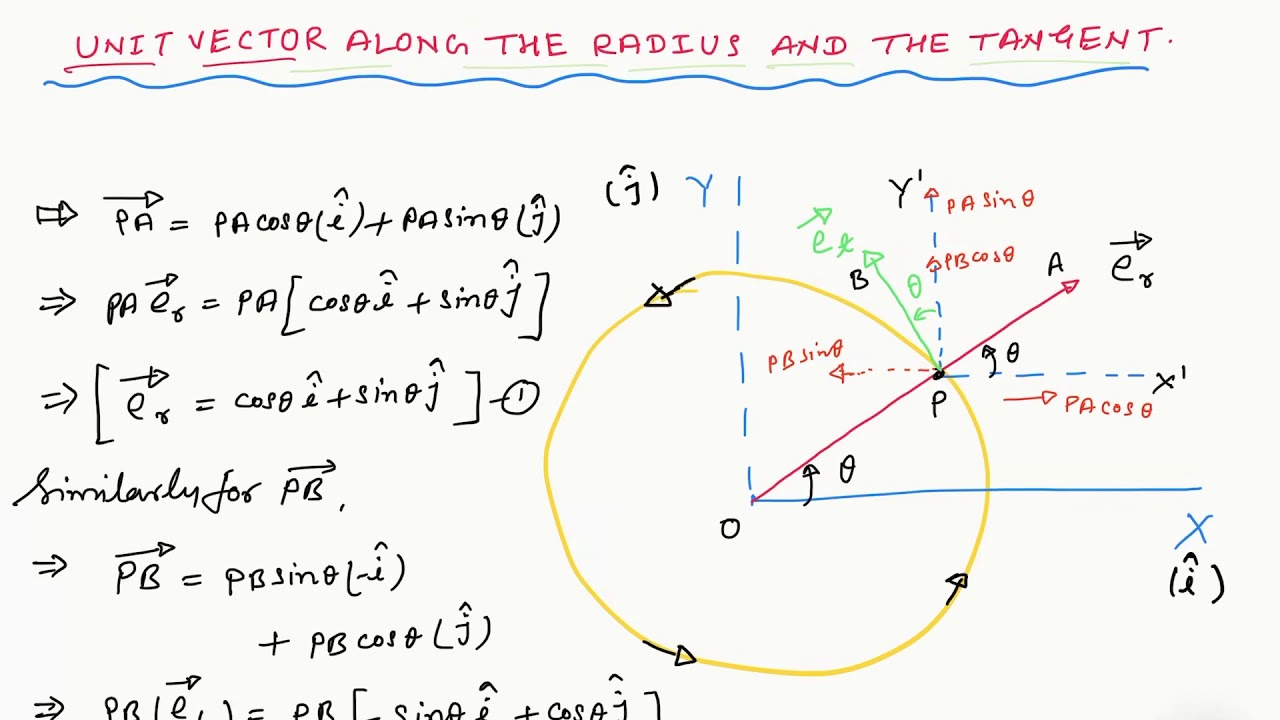 UNIT VECTOR ALONG THE RADIUS AND THE TANGENT.
⇒ \vec{PA} = PA cosθ(î) + PA sinθ(ĵ)
⇒ PA \vec{e}_r = PA [cosθ î + sinθ ĵ]
⇒ [\vec{e}_r = cosθ î + sinθ ĵ] - ①
Similarly for \vec{PB},
⇒ \vec{PB} = PB sinθ(-î)
+ PB cosθ(ĵ)
⇒ PB(\vec{e}_t) = PB [-sinθ î + cosθ ĵ]
(ĵ) Y
Y'
PA sinθ
\vec{e}_t
PB cosθ
B
θ
A
\vec{e}_r
PB sinθ
θ
X'
P
PA cosθ
θ
O
X
(î)